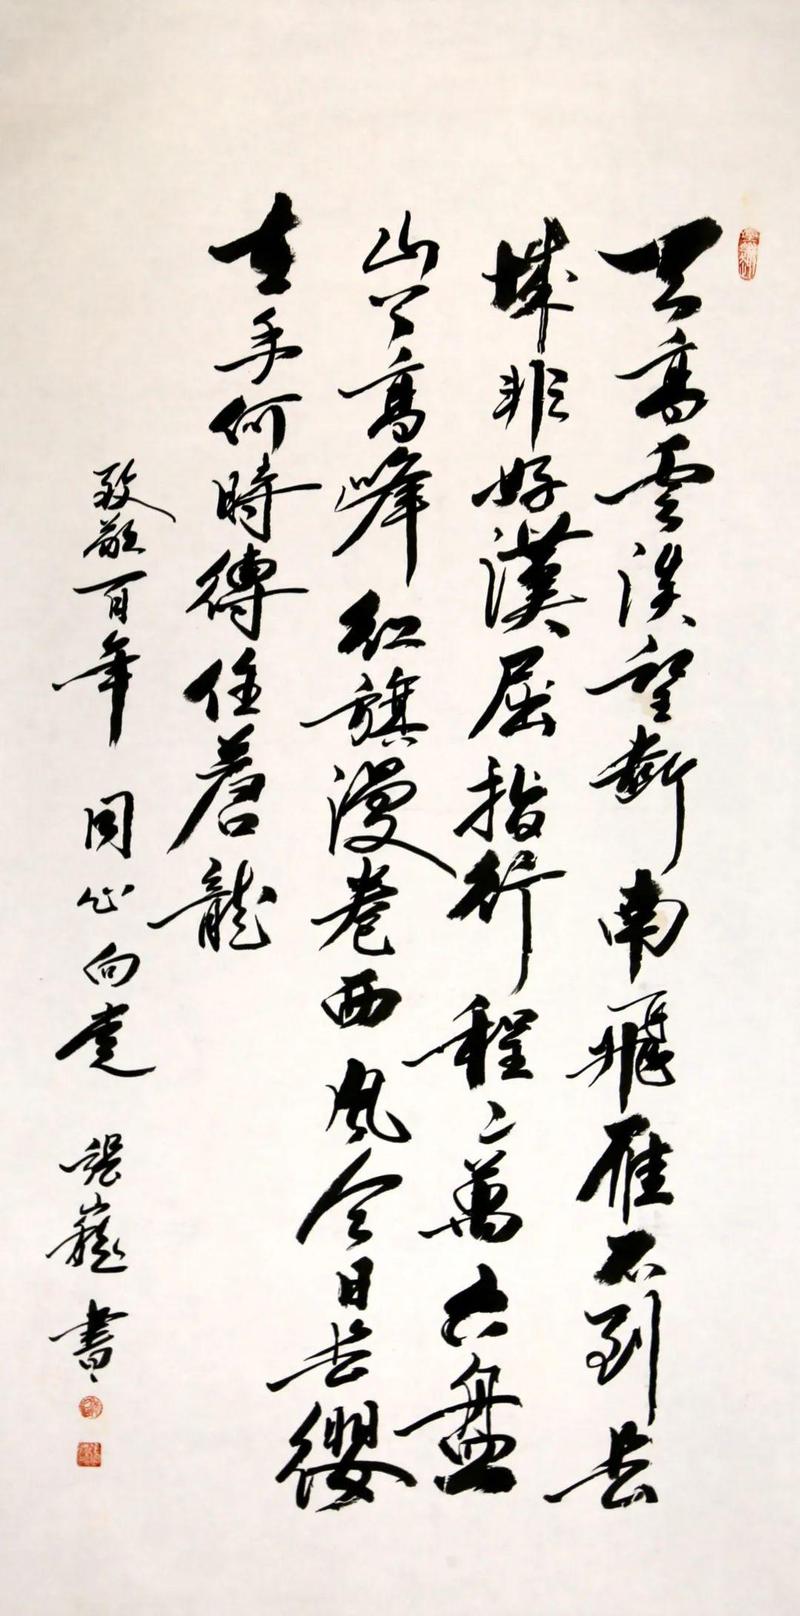 天高雲淡望斷南飛雁不到長
城非好漢屈指行程二萬六盤
山上高峰紅旗漫卷西風今日長纓
在手何時縛住蒼龍
致敬百年 同心向党 張書